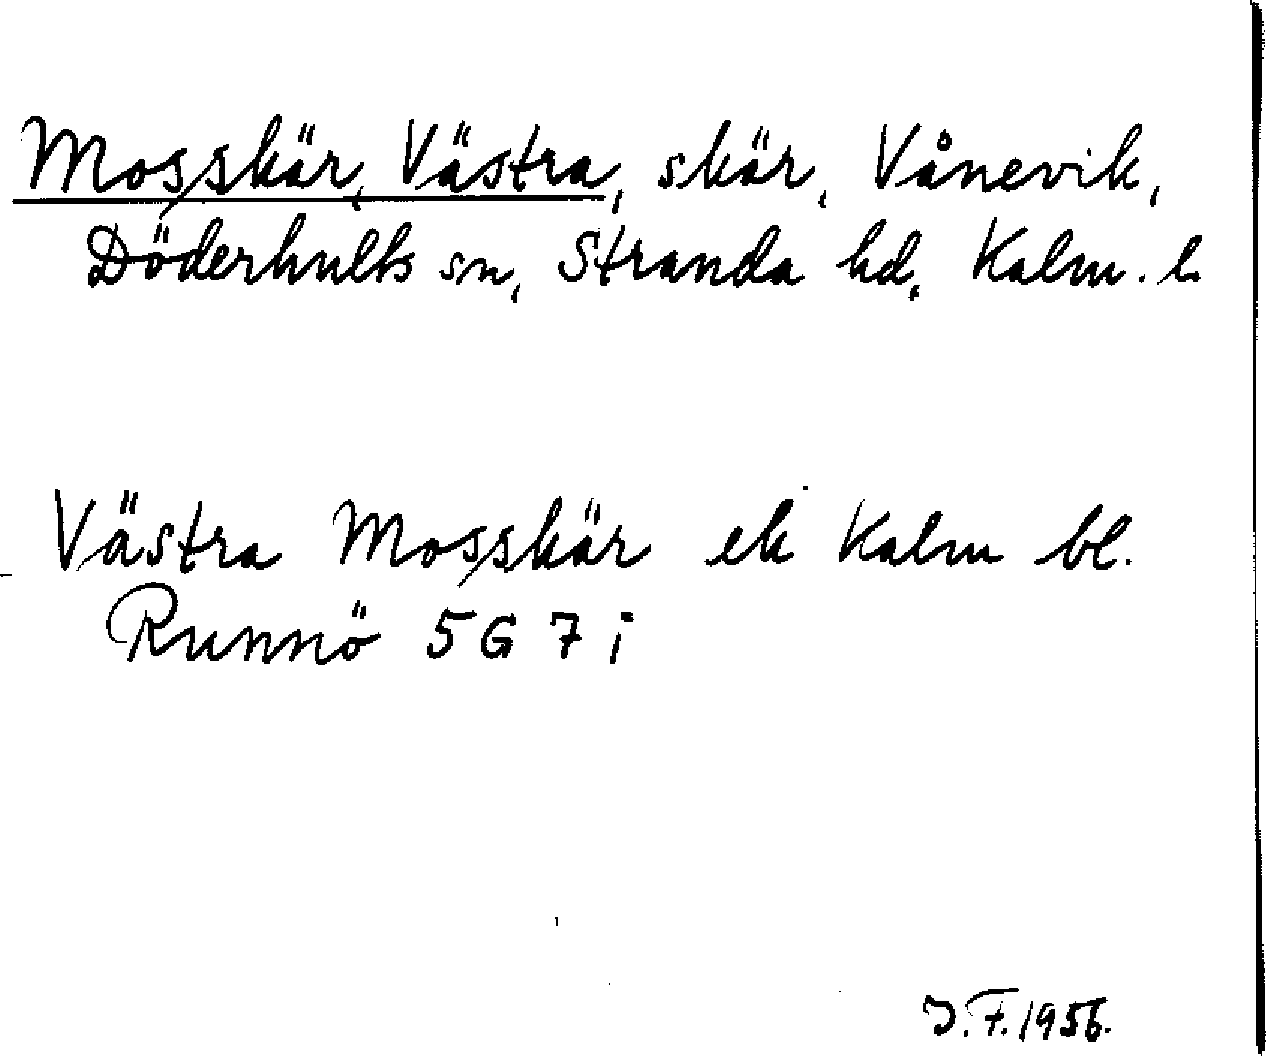 Mosskär, Västra, skär, Vånevik,
Döderhults sn, Stranda hd, Kalm. l.
Västra Mosskär ek Kalm bl.
Runnö 5G 7i
J.F. 1956.